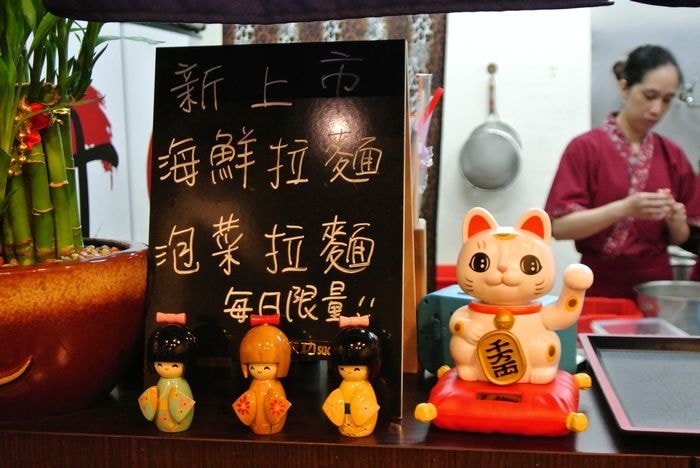 新上市
海鮮拉麵
泡菜拉麵
每日限量!!
千万両